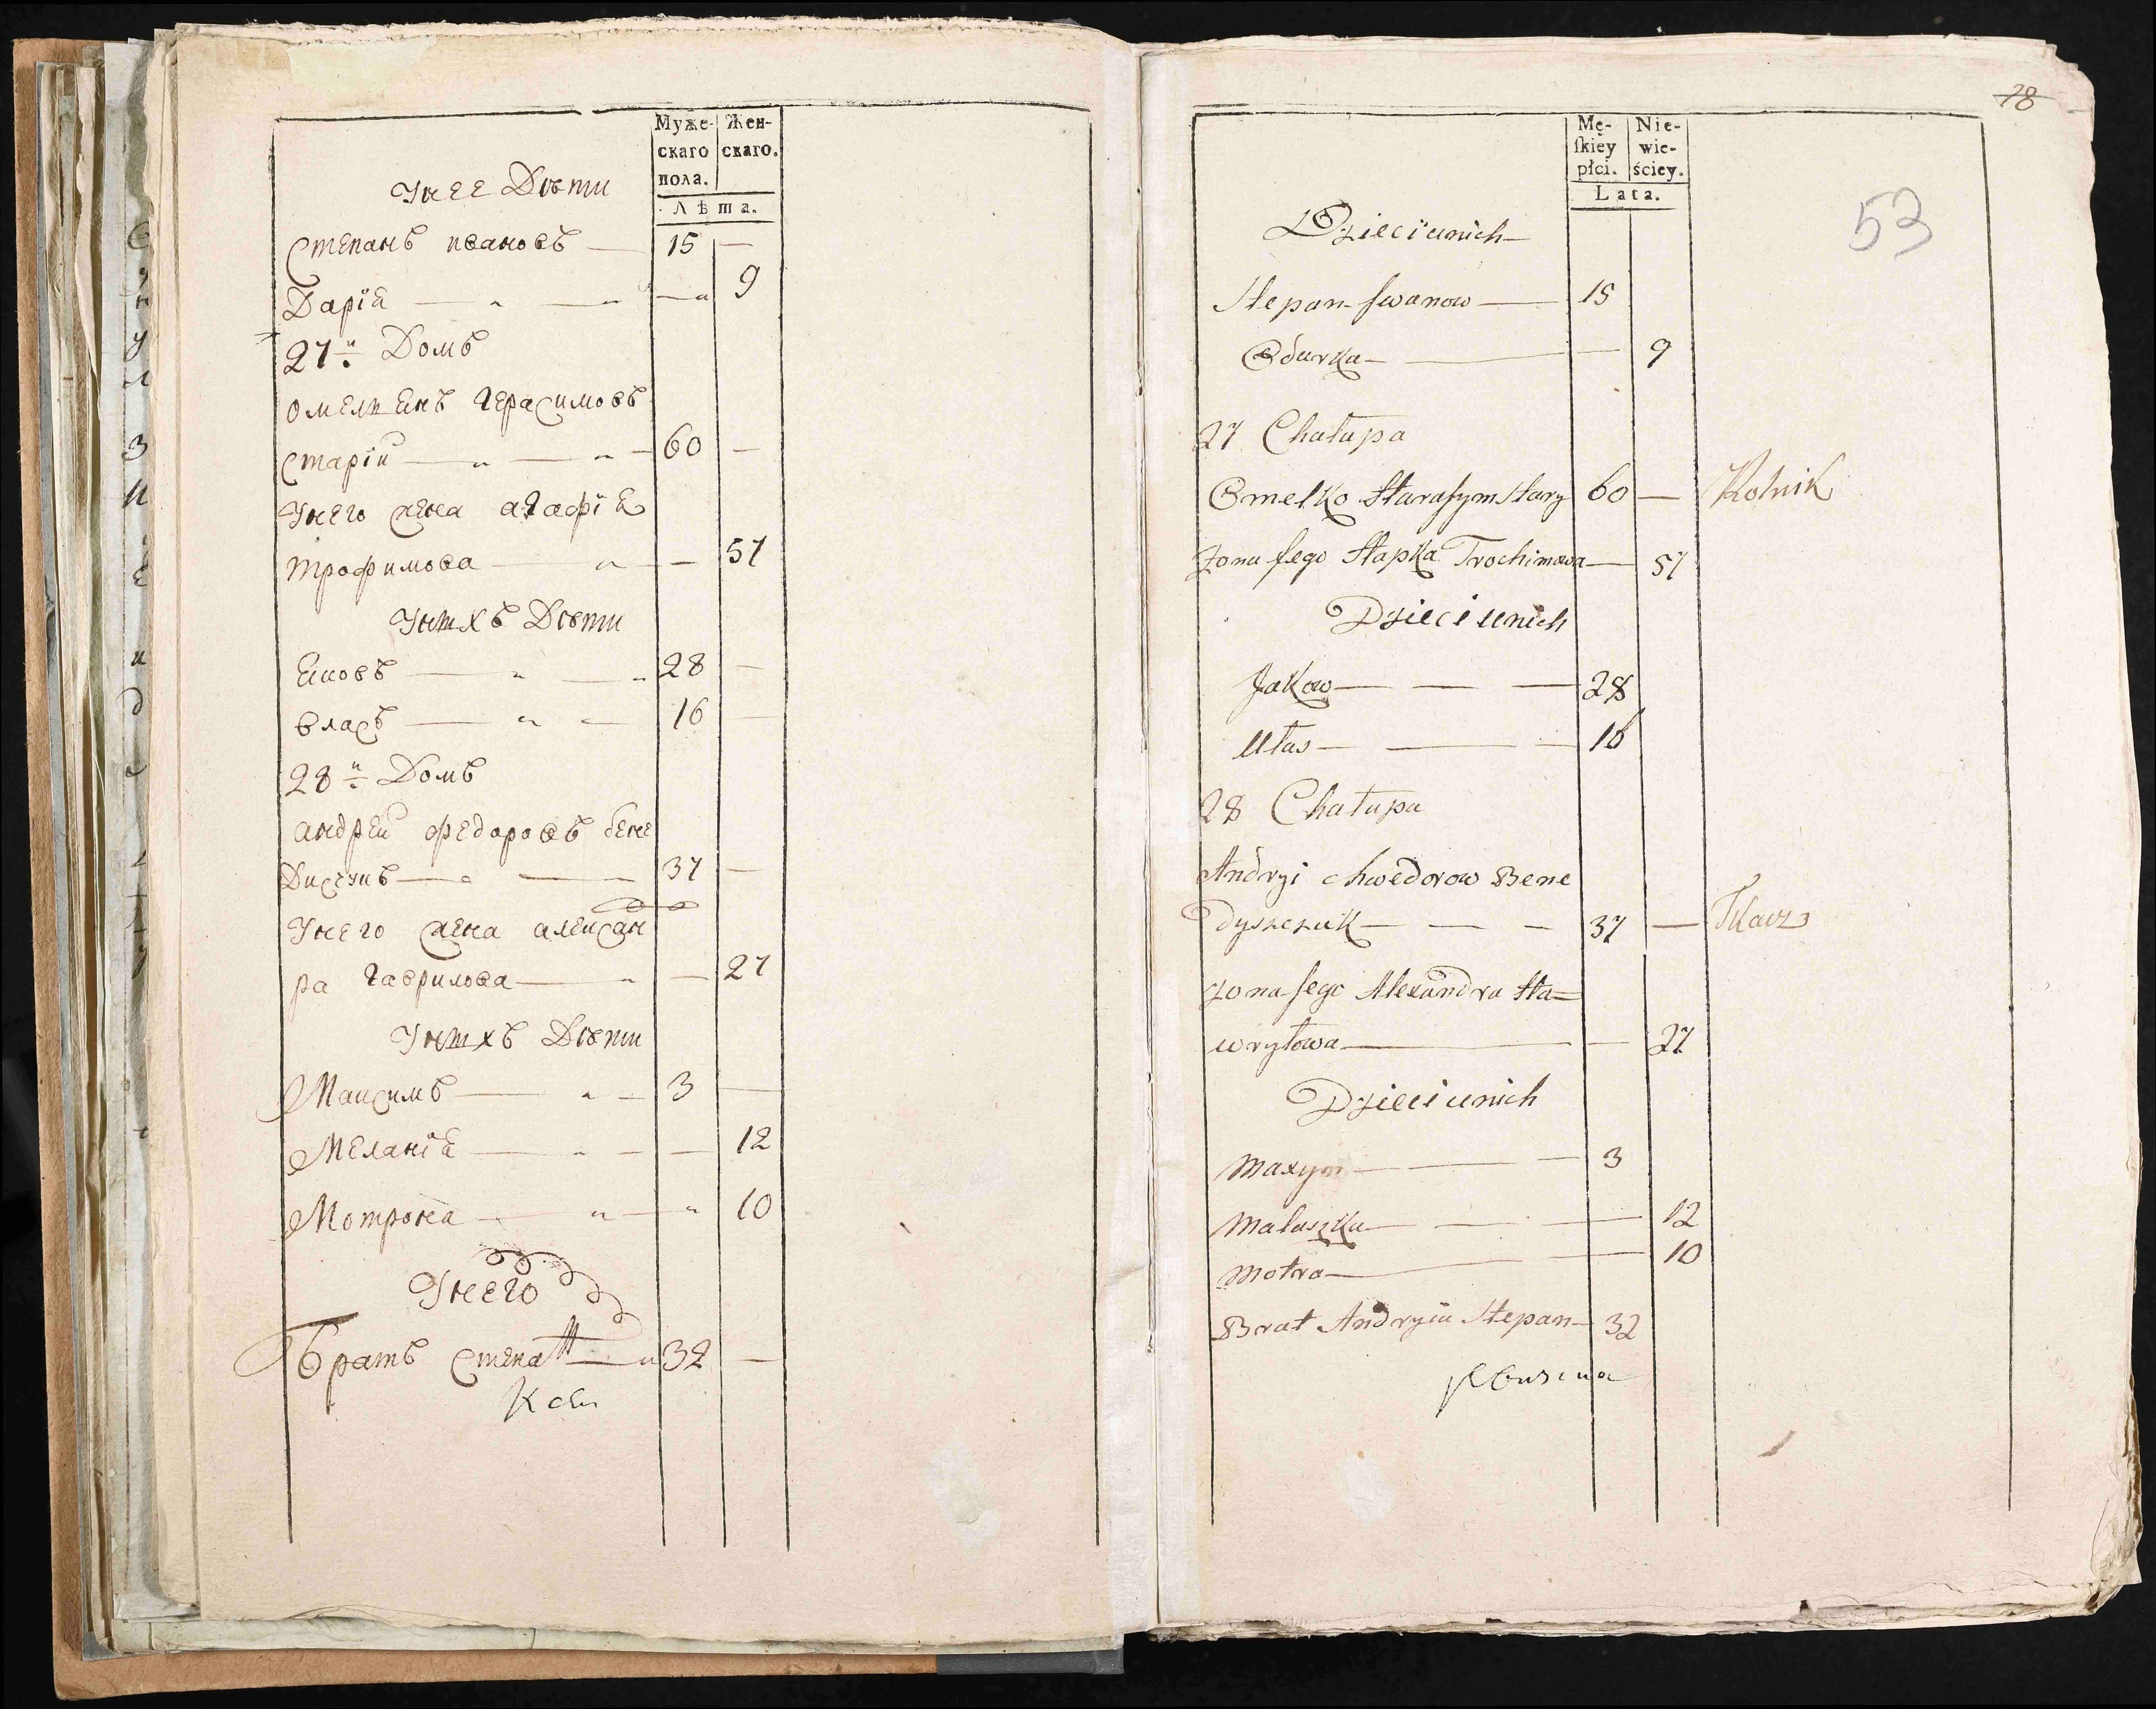 Муже- Жен-
скаго скаго.
пола.
Лѣта.
Унее Дѣти
Степанъ ивановъ — 15 —
Дарїя — „ — „ — „ 9
27й Домъ
омелянъ Герасимовъ
старїй — „ — „ — 60 —
Унего жена агафїя
трофимова — „ — 57
Унихъ Дѣти
яковъ — „ — „ 28 —
власъ — „ — 16 —
28й Домъ
андрей федоровъ бене
дисчукъ — „ — 37 —
Унего жена алексан
ра гаврилова — „ — 27
Унихъ Дѣти
Максимъ — „ — 3 —
Меланїя — „ — — 12
Мотрона — „ — „ 10
Унего
братъ степанъ — „ 32 —
78
53
Mę- Nie-
ſkiey wie-
płci. ściey.
Lata.
Dzieci unich
Stepan Iwanow — 15
Odarka — — 9
27 Chałupa
Omelko Harasym Stary 60 — Rolnik
Zona Jego Hapka Trochimowa — 57
Dzieci unich
Jakow — — — 28
Ułas — — — 16
28 Chałupa
Andryi Chwedorow Bene
dyszczuk — — — 37 — Tkacz
Zona Jego Alexandra Ha=
wryłowa — — 27
Dzieci unich
Maxym — — — 3
Małaszka — — — 12
Motra — — 10
Brat Andryia Stepan — 32